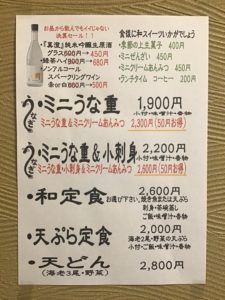 お昼から飲んでもイイじゃない
洗菜セール!!
『真澄』純米吟醸生原酒
グラス600円→450円
緑茶ハイ900円→680円
ノンアルコール
スパークリングワイン
赤or白
食後に和スイーツいかがでしょう
・季節の上生菓子 400円
・ミニぜんざい 450円
・ミニクリームあんみつ 450円
・ランチタイム コーヒー 200円
うなぎの
・ミニうな重 1,900円
小付・味噌汁・香物
ミニうな重&ミニクリームあんみつ 2,300円(50円お得)
うなぎの
・ミニうな重&小刺身 2,200円
小付・味噌汁・香物
ミニうな重・小刺身&ミニクリームあんみつ 2,600円(50円お得)
・和定食 2,600円
お選び下さい。焼き魚または天ぷら
刺身・茶碗蒸し
ご飯・味噌汁・香物
・天ぷら定食 2,000円
海老2尾・野菜の天ぷら
小付・ご飯・味噌汁・香物
・天どん 2,800円
(海老3尾・野菜)